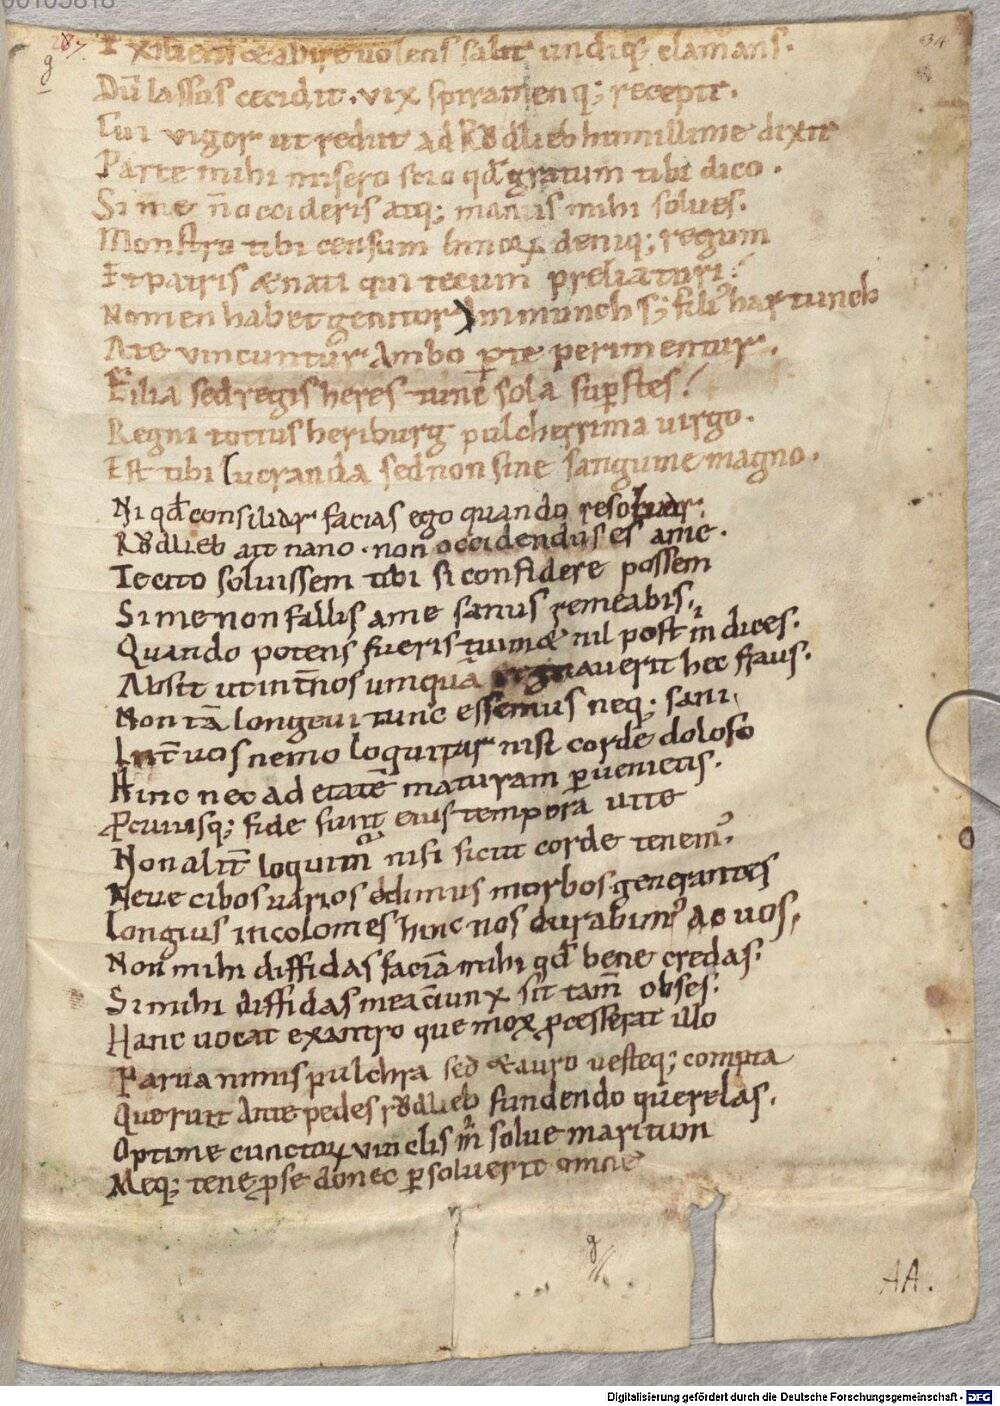 00105818
287.
g
34
Exiliens & abire uolens salit undiq; clamans.
Dū lassus cecidit. vix spiramenq; recepit.
Cui vigor ut rediit ad Rǒdlieb humillime dixit
Parce mihi misero scio qđ gratum tibi dico.
Si me ñ occideris atq; manus mihi solues.
Monstro tibi censum binorꝝ deniq; regum
Et patris & nati qui tecum preliaturi.
Nomen habet genitor Immunch s; fili' hartunch
A te vincuntur Ambo p te perimentur.
Filia sed regis heres tunc sola supstes!
Regni totius heriburg pulcherrima uirgo.
Est tibi lucranda sed non sine sanguine magno.
Ni qđ consiliar facias ego quando resoluar.
Rǒdlieb ait nano. non occidendus es a me.
Te cito soluissem tibi si confidere possem
Si me non fallis a me sanus remeabis.
Quando potens fueris tuim& nil post m dices.
Absit ut int nos umquā regnauerit hec fraus.
Non tā longeui tunc essemus neq; sani
Int uos nemo loquitur nisi corde doloso
Hinc nec ad etatē maturam puenietis.
Pcuiusq; fide sunt eius tempora uite
Non alit loquim' nisi sicut corde tenem'.
Neue cibos varios edimus morbos generantes
Longius incolomes hinc nos durabim' ac uos.
Non mihi diffidas faciā mihi qđ bene credas.
Si mihi diffidas mea ciunx sit tam obses.
Hanc uocat ex antro que mox pcesserat illo
Parua nimis pulchra sed & auro uesteq; compta
Que ruit Ante pedes rǒdlieb fundendo querelas.
Optime cunctorꝝ vinclis m solue maritum
Meq; tene p se donec psoluerit omne
g
AA.
Digitalisierung gefördert durch die Deutsche Forschungsgemeinschaft - DFG